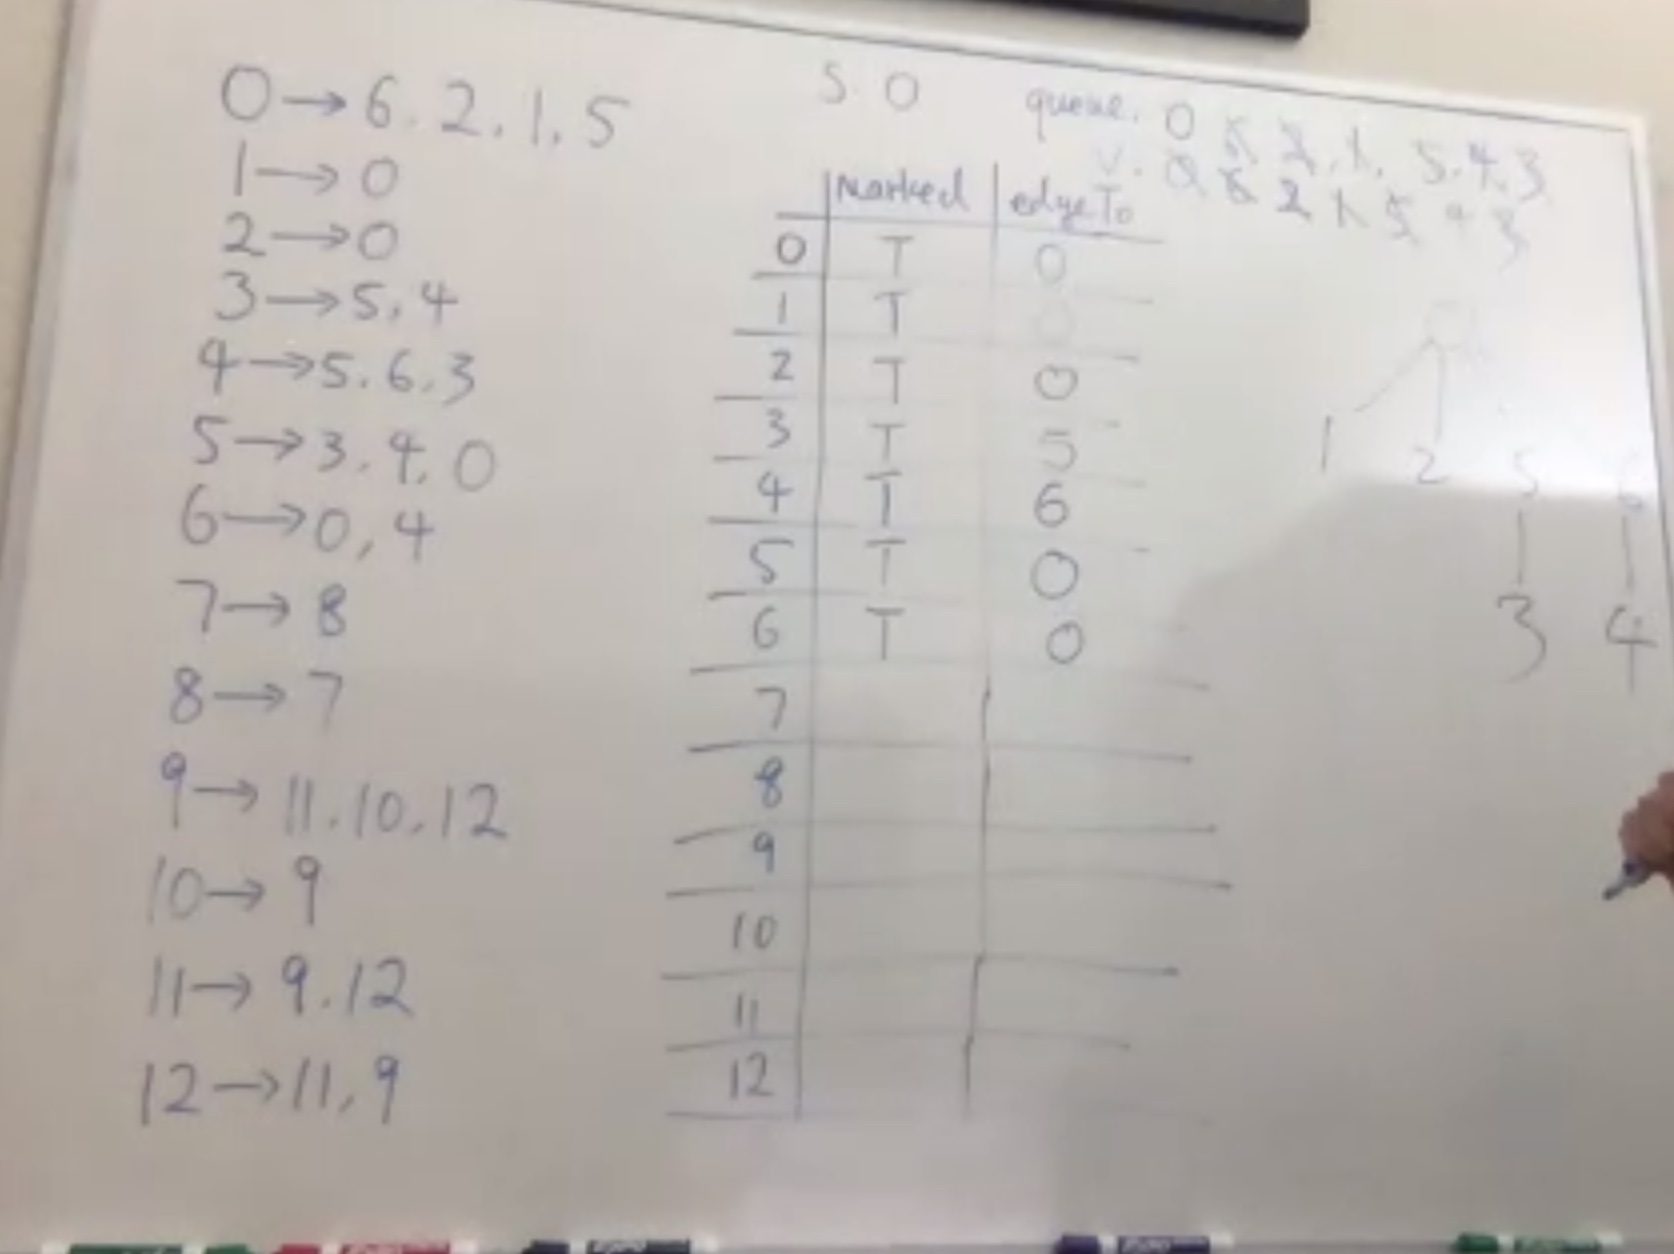 0→6.2.1.5
1→0
2→0
3→5,4
4→5.6.3
5→3.4.0
6→0,4
7→8
8→7
9→11.10.12
10→9
11→9.12
12→11,9
S. 0
queue. 0 2.1. 5.4.3
V. 0 6 2 1 5 4 3
marked edgeTo
0 T 0
1 T 0
2 T 0
3 T 5
4 T 6
5 T 0
6 T 0
7
8
9
10
11
12
1 2 5 6
3 4